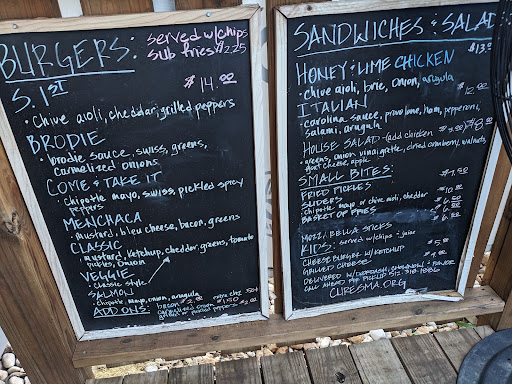 BURGERS: served w/chips
sub fries $2.25
S. 1ST $14.00
• chive aioli, cheddar, grilled peppers
BRODIE
• brodie sauce, swiss, greens,
carmelized onions
COME & TAKE IT
• chipotle mayo, swiss, pickled spicy
peppers
MENCHACA
• mustard, bleu cheese, bacon, greens
CLASSIC
mustard, ketchup, cheddar, greens, tomato
pickles, onion
VEGGIE
• classic style
SALMON
• chipotle mayo, onion, arugula
ADD ONS: bacon $2.00 extra chz .50¢
SANDWICHES & SALAD
$13.00
HONEY-LIME CHICKEN
• chive aioli, brie, onion, arugula
ITALIAN $12.00
carolina sauce, provolone, ham, pepperoni,
salami, arugula
HOUSE SALAD -(add chicken $4.00) $8.00
• greens, onion vinaigrette, dried cranberry, walnuts,
goat cheese, apple
SMALL BITES:
FRIED PICKLES
SLIDERS $10.00
chipotle mayo or chive aioli, cheddar
BASKET OF FRIES
MOZZ. BELLA STICKS
KIDS: served w/chips & juice
CHEESE BURGER W/KETCHUP
GRILLED CHEESE
DELIVERED W/ DOORDASH, & FAVOR
CALL AHEAD FOR PICKUP
CURESMA.ORG